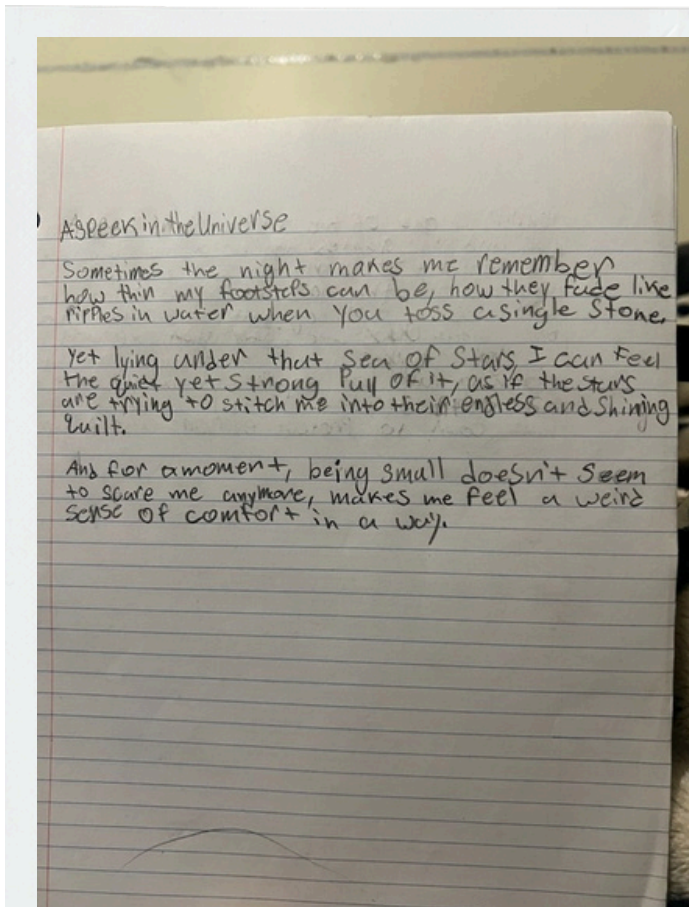 A speck in the Universe
Sometimes the night makes me remember
how thin my footsteps can be, how they fade like
ripples in water when you toss a single stone.
Yet lying under that sea of stars, I can feel
the quiet yet strong pull of it, as if the stars
are trying to stitch me into their endless and shining
quilt.
And for a moment, being small doesn't seem
to scare me anymore, makes me feel a weird
sense of comfort in a way.